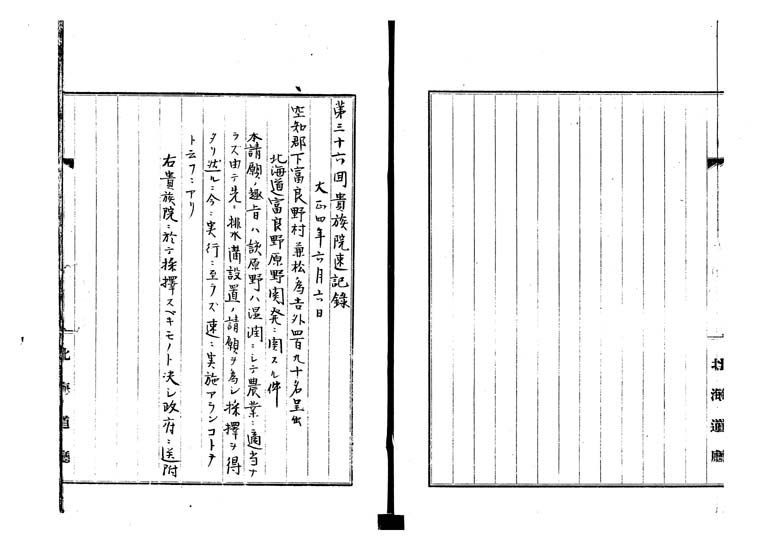 第三十六回貴族院速記録
大正四年六月六日
空知郡下富良野村兼松為吉外四百九十名呈出
北海道富良野原野開発ニ関スル件
本請願ノ趣旨ハ該原野ハ湿潤ニシテ農業ニ適当ナ
ラズ由テ先ニ排水溝設置ノ請願ヲ為シ採擇ヲ得
タリ然ルニ今ニ実行ニ至ラズ速ニ実施アランコトヲ
ト云フニアリ
右貴族院ニ於テ採擇スベキモノト決シ政府ニ送附
北海道廳
北海道廳